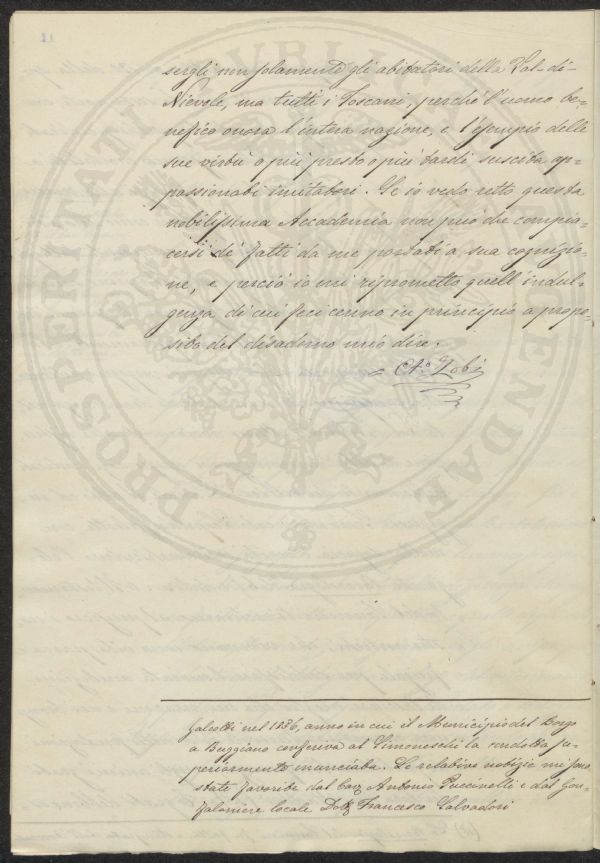 sergli non solamente gli abitatori della Val-di-
Nievole, ma tutti i Toscani, perché l'uomo be-
nefico onora l'intera nazione, e l'esempio delle
sue virtù o più presto o più tardi suscita ap-
passionati imitatori. Se io vedo retto questa
nobilissima Accademia non può che compia-
cersi de' fatti da me portati a sua cognizio-
ne, e perciò io mi riprometto quell'indul-
genza di cui feci cenno in principio a propo-
sito del disadorno mio dire.
Zobi
PROSPERITATI PVBLICAE AVGENDAE
Galeotti nel 1836, anno in cui il Municipio del Borgo
a Buggiano conferiva al Simoneschi la condotta su-
periormente annunciata. Le relative notizie mi furo
state favorite dal Antonio Puccinelli e dal Gon-
faloniere locale Dott. Francesco Salvadori